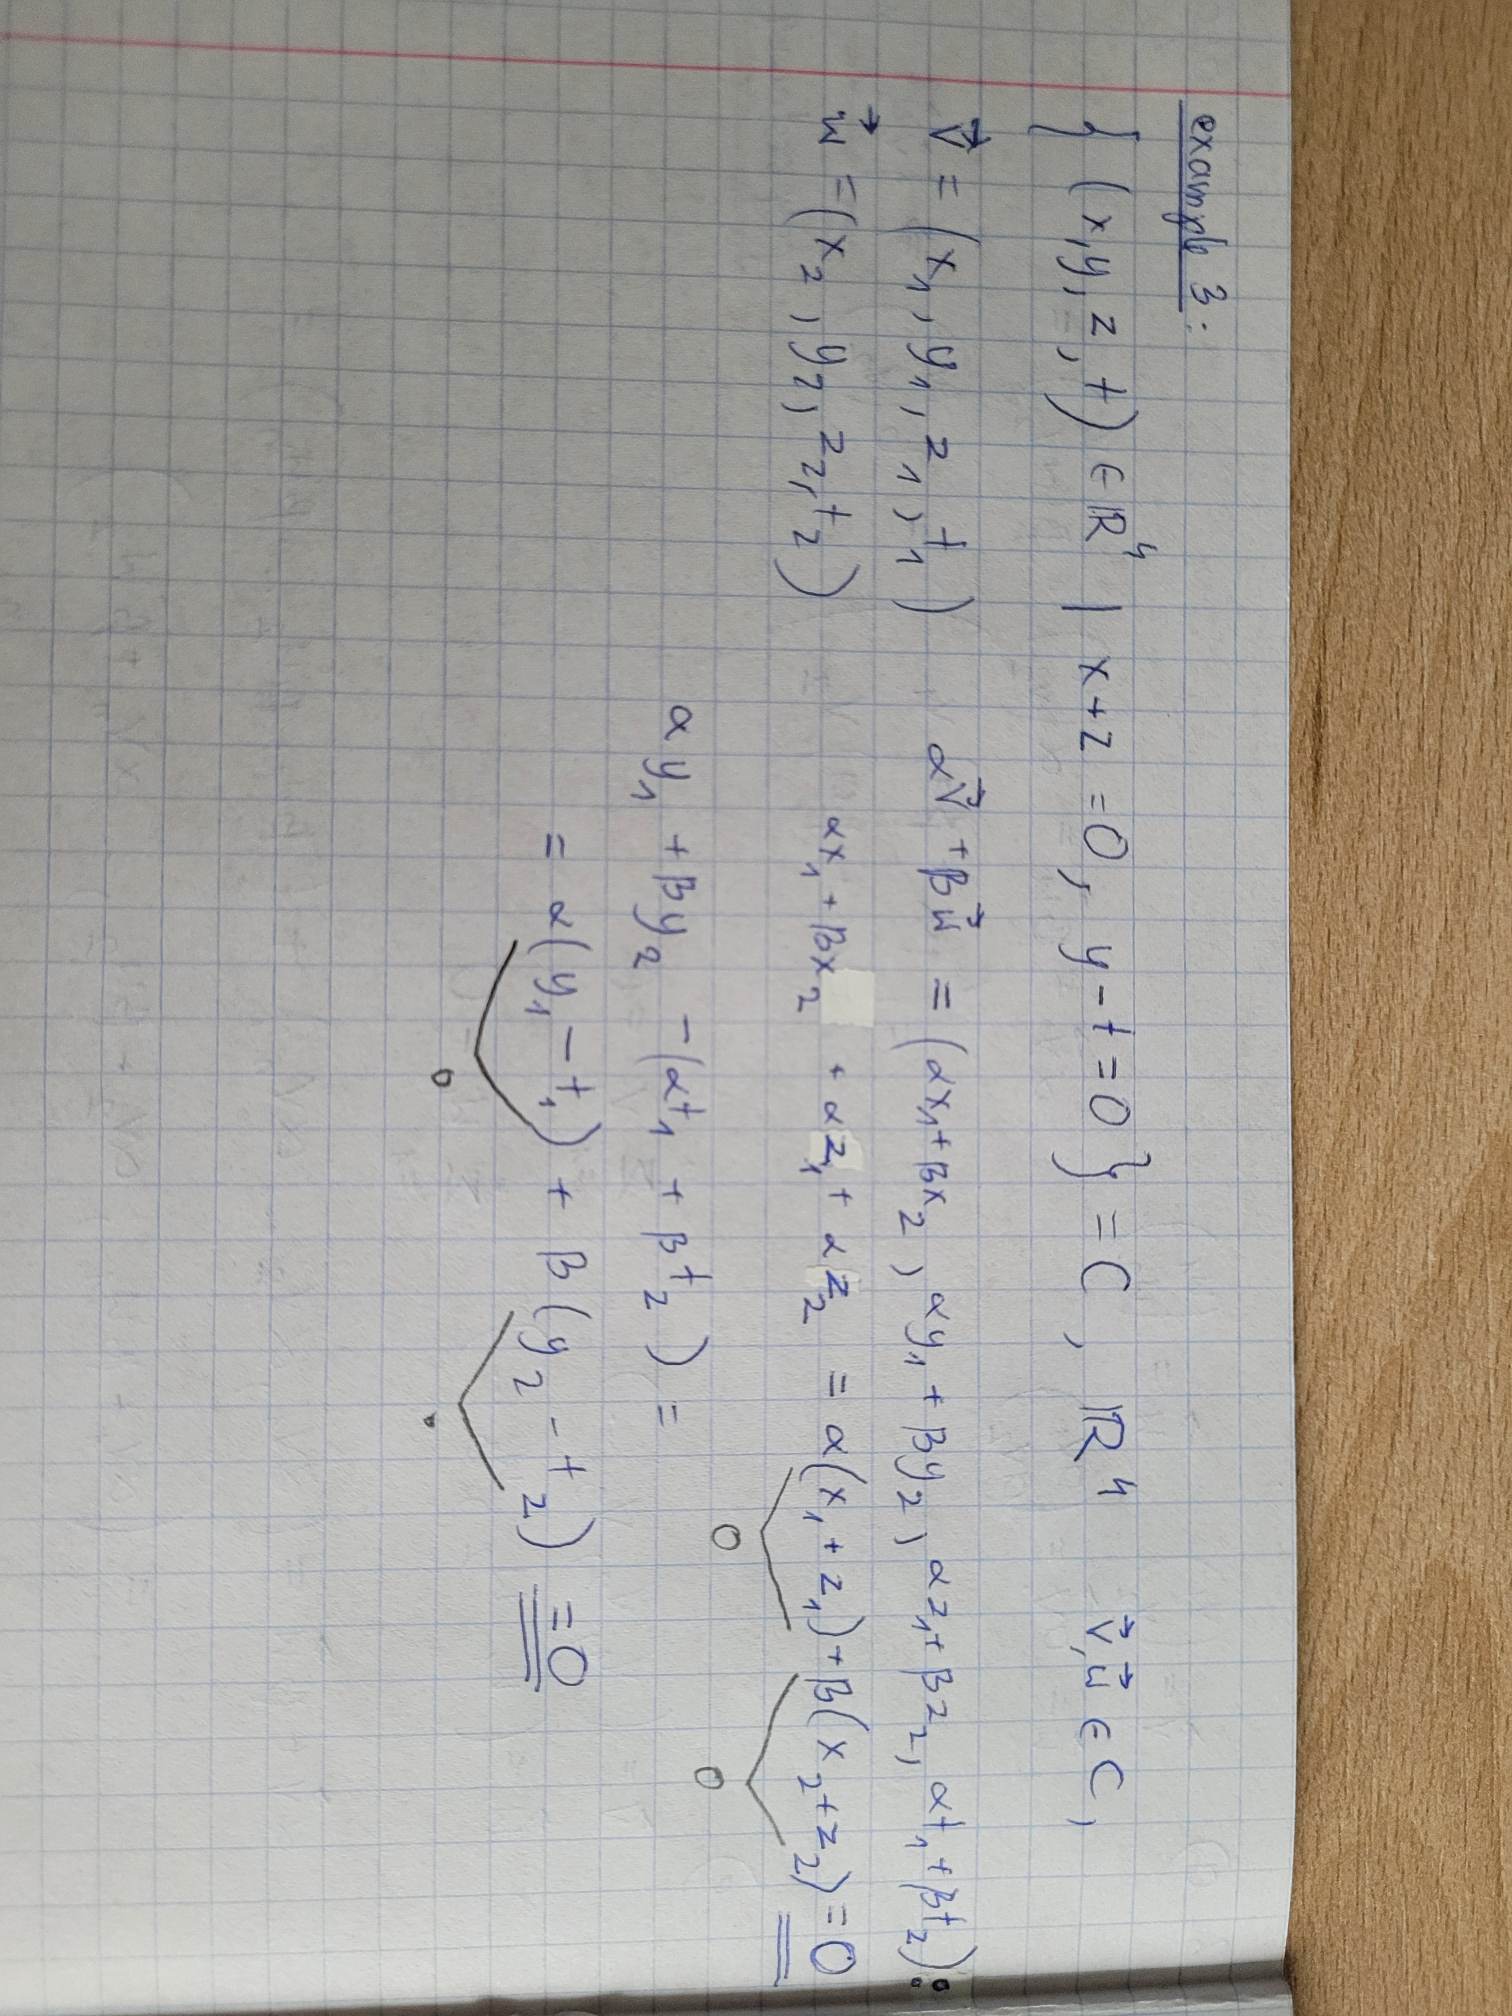 example 3:
{ (x,y,z,t) ∈ ℝ⁴ | x+z=0, y-t=0 } = C, ℝ⁴ v⃗,w⃗ ∈ C,
v⃗ = (x₁, y₁, z₁, t₁) αv⃗ + βw⃗ = (αx₁+βx₂, αy₁+βy₂, αz₁+βz₂, αt₁+βt₂):
w⃗ = (x₂, y₂, z₂, t₂) αx₁ + βx₂ + αz₁ + αz₂ = α(x₁+z₁)+β(x₂+z₂)=0
0 0
αy₁ + βy₂ -(αt₁ + βt₂) =
= α(y₁-t₁) + β(y₂-t₂) =0
0 0